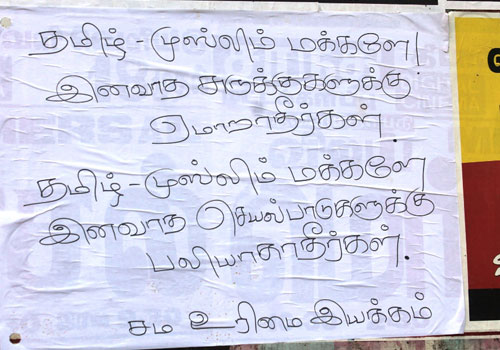 தமிழ் - முஸ்லிம் மக்களே!
இனவாத சுருக்குகளுக்கு
ஏமாறாதீர்கள்.
தமிழ் - முஸ்லிம் மக்களே
இனவாத செயல்பாடுகளுக்கு
பலியாகாதீர்கள்.
சம உரிமை இயக்கம்